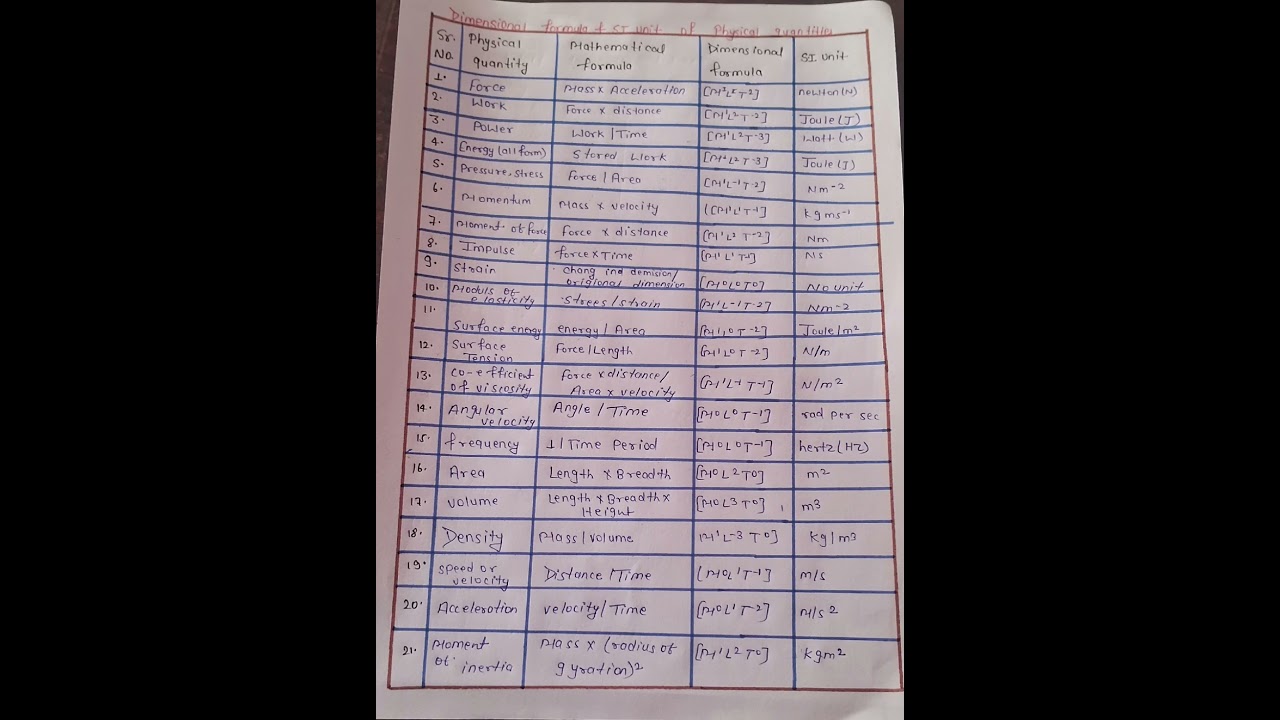 Dimensional formula & SI unit of Physical quantities
Sr. No. Physical quantity Mathematical formula Dimensional formula SI unit
1. Force Mass x Acceleration newton (N)
2. Work Force x distance [M¹L²T-2] Joule (J)
3. Power Work / Time [M¹L²T-3] Watt (W)
4. Energy (all form) Stored work Joule (J)
5. Pressure, stress force / Area [M¹L-1T-2] Nm-2
6. Momentum Mass x velocity [M¹L¹T-1] kgms-1
7. Moment of force force x distance [M¹L²T-2] Nm
8. Impulse force x Time Ns
9. Strain chang ind demision/
origional dimension [M0L0T0] No unit
10. Moduls of
elasticity strees/strain [M¹L-1T-2] Nm-2
11. Surface energy energy / Area [M¹L⁰T-2] Joule/m²
12. Surface
Tension Force/Length [M¹L⁰T-2] N/m
13. co-efficient
of viscosity force x distance/
Area x velocity [M¹L-1T-1] N/m²
14. Angular
velocity Angle / Time [M0L0T-1] rad per sec
15. frequency 1/Time Period [M0L0T-1] hertz (HZ)
16. Area Length x Breadth [M0L2T0] m²
17. volume Length x Breadth x
Height [M0L3T0] m3
18. Density Mass / volume M¹L-3T0] kg/m3
19. speed or
velocity Distance / Time [M0L¹T-1] m/s
20. Acceleration velocity / Time [M0L¹T-2] M/s2
21. Moment
of inertia Mass x (radius of
gyration)2 [M¹L²T0] kgm2